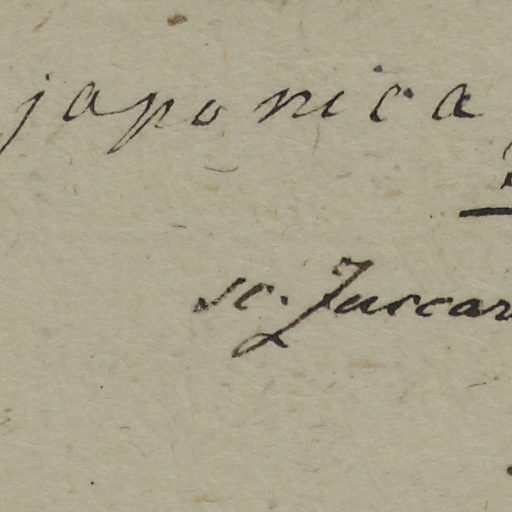 japonica
sc. Zuccar